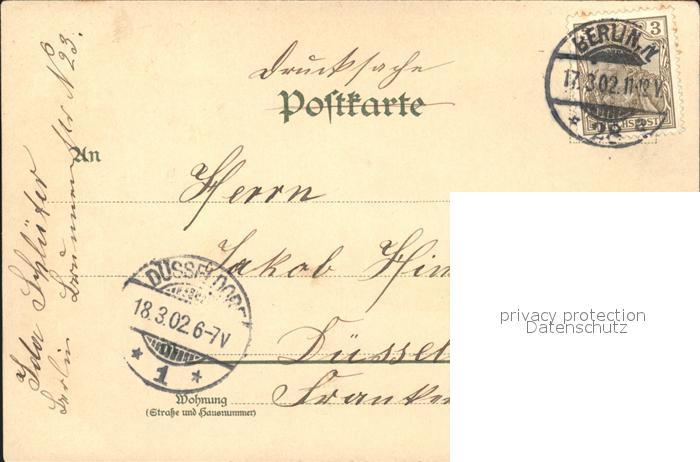 Drucksache
Postkarte
An
Herrn
Jakob Him
Düssel
Franken
Wohnung
(Straße und Hausnummer)
Ida Schlüter
Berlin Brunnenstr N 23.
BERLIN. N.
17.3.02.11-12 V
* 28 a
3
REICHSPOST
DÜSSELDORF
18.3.02.6-7V
* 1 *
privacy protection
Datenschutz